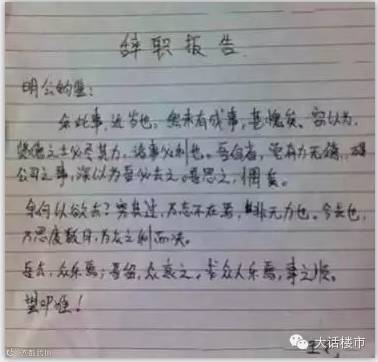 辞职报告
明公的鉴:
余此事,近岁也,然未有成事,甚愧矣。窃以为,
贤德之士必尽其力,诸事必利也。吾何省,空有力无循,
公司之事,深以为吾必去之。吾思之,惆矣。
余何以欲去?实我过,为志不在焉,非无力也。今去也,
乃思度数月,为众之利而决。
吾去,众乐焉;吾留,众哀之。众人乐焉,事之顺。
望叩准!
大话楼市